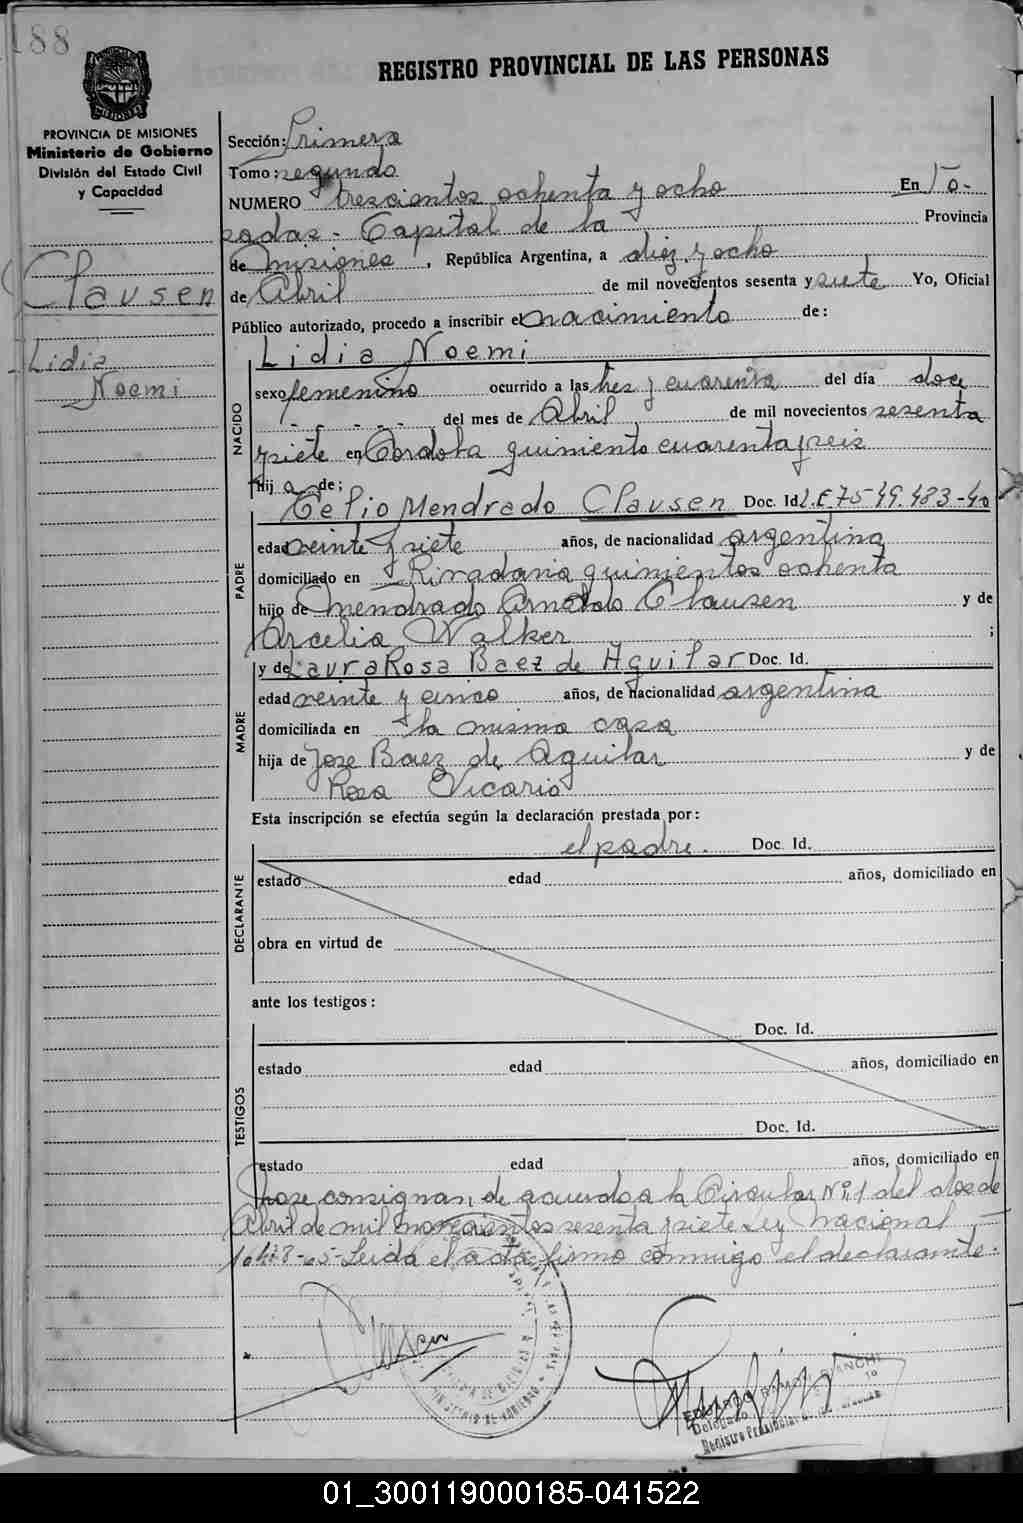 188
REGISTRO PROVINCIAL DE LAS PERSONAS
PROVINCIA DE MISIONES
Ministerio de Gobierno
División del Estado Civil
y Capacidad
Clausen
Lidia
Noemi
Sección: Primera
Tomo: segundo
NUMERO trescientos ochenta y ocho En Po-
sadas - Capital de la Provincia
de misiones, República Argentina, a diez y ocho
de Abril de mil novecientos sesenta y siete Yo, Oficial
Público autorizado, procedo a inscribir el nacimiento de:
Lidia Noemi
NACIDO
sexo femenino ocurrido a las tres y cuarenta del día doce
- - - - - del mes de Abril de mil novecientos sesenta
y siete en Cordoba quiniento cuarenta y seis
hij a de;
PADRE
Celio Mendrado Clausen Doc. Id. L.E. 7549.483-40
edad veinte y siete años, de nacionalidad argentina
domiciliado en Rivadavia quinientos ochenta
hijo de mendrado Arnoldo Clausen y de
Arcelia Walker ;
y de Laura Rosa Baez de Aguilar Doc. Id.
MADRE
edad veinte y cinco años, de nacionalidad argentina
domiciliada en la misma casa
hija de Jose Baez de Aguilar y de
Rosa Vicario
Esta inscripción se efectúa según la declaración prestada por:
el padre. Doc. Id.
DECLARANTE
estado edad años, domiciliado en
obra en virtud de
ante los testigos:
Doc. Id.
TESTIGOS
estado edad años, domiciliado en
Doc. Id.
estado edad años, domiciliado en
consignan, de acuerdo a la Circular Nº 1 del dos de
Abril de mil novecientos sesenta y siete Ley Nacional
Leida el acta firmo conmigo el declarante.
Clausen
EDUARDO RAMON BIANCHI
Delegado
Registro Provincial de las Personas
01_300119000185-041522